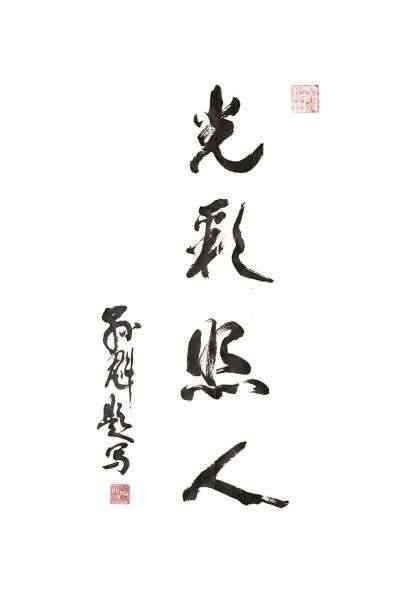 光彩照人
题写